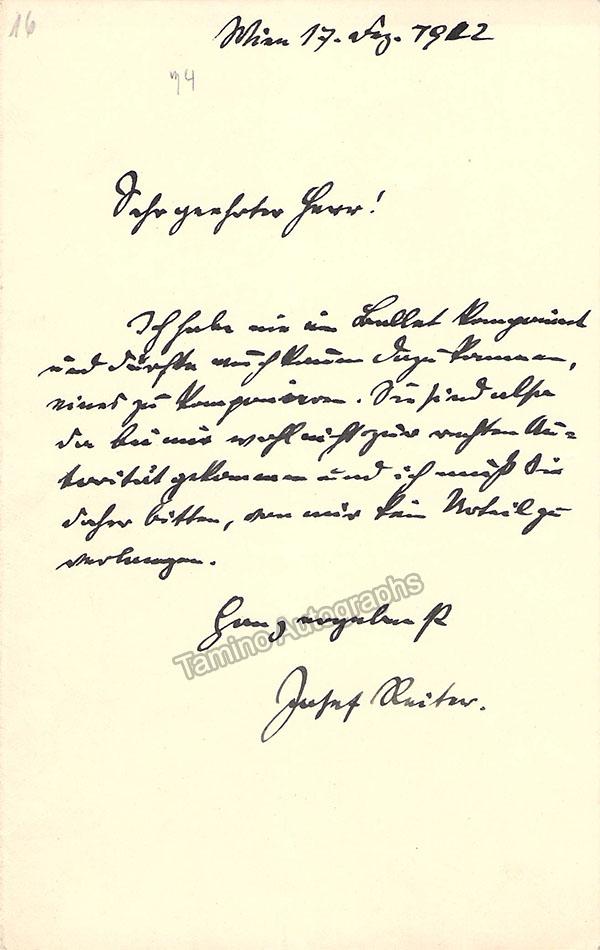 16
Wien 17. Dez. 1912
Sehr geehrter Herr!
Ich habe nie ein Ballet komponiert
und dürfte auch kaum dazu kommen,
eines zu komponieren. Sie sind also
da bei mir wohl nicht zur rechten Au-
torität gekommen und ich muß Sie
daher bitten, von mir kein Urteil zu
verlangen.
Ganz ergebenst
Josef Reiter.
Tamino Autographs